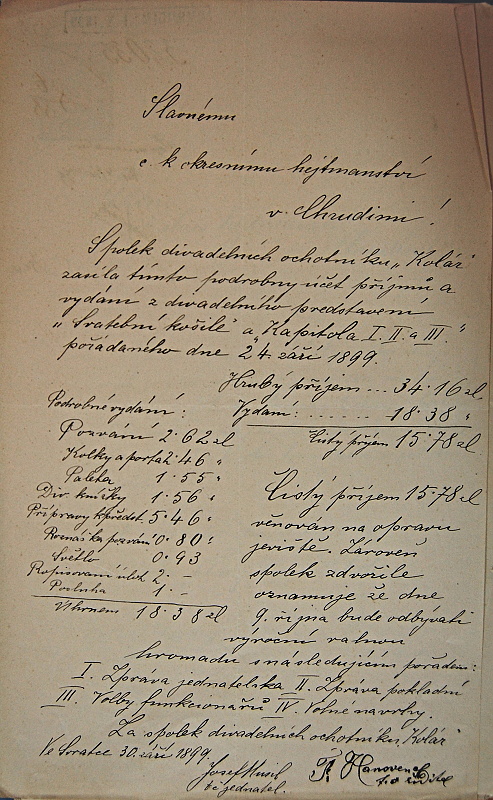 Slavnému
c. k okresnímu hejtmanství
v Chrudimi!
Spolek divadelních ochotníku „Kolár"
zasíla tímto podrobny účet příjmů a
vydání z divadelního predstavení
„Svatební košile" a „Kapitola I. II. a III."
pořádaného dne 24. září 1899.
Hrubý příjem ... 34·16 zl
Vydani: ...... 18·38 „
Čistý příjem 15·78 zl.
Podrobné vydání:
Pozvání 2·62 zl
Kolky a porta 2·46 „
Paleta 1·55 „
Div. knížky 1·56 „
Přípravy k předst. 5·46 „
Roznáška pozván 0·80 „
Světlo 0·93
Rozpisovaní úloh 2·–
Posluha 1·–
Uhrnem 18·38 zl
Čistý příjem 15·78 zl
věnován na opravu
jeviště. Zároveň
spolek zdvořile
oznamuje že dne
9. října bude odbývati
výroční valnou
hromadu s následujícím pořadem:
I. Zprava jednatelska II. Zpráva pokladní
III. Volby funkcionářů IV. Volné navrhy.
Za spolek divadelních ochotníku „Kolár"
Ve Svratce 30. září 1899.
Josef
č. jednatel.